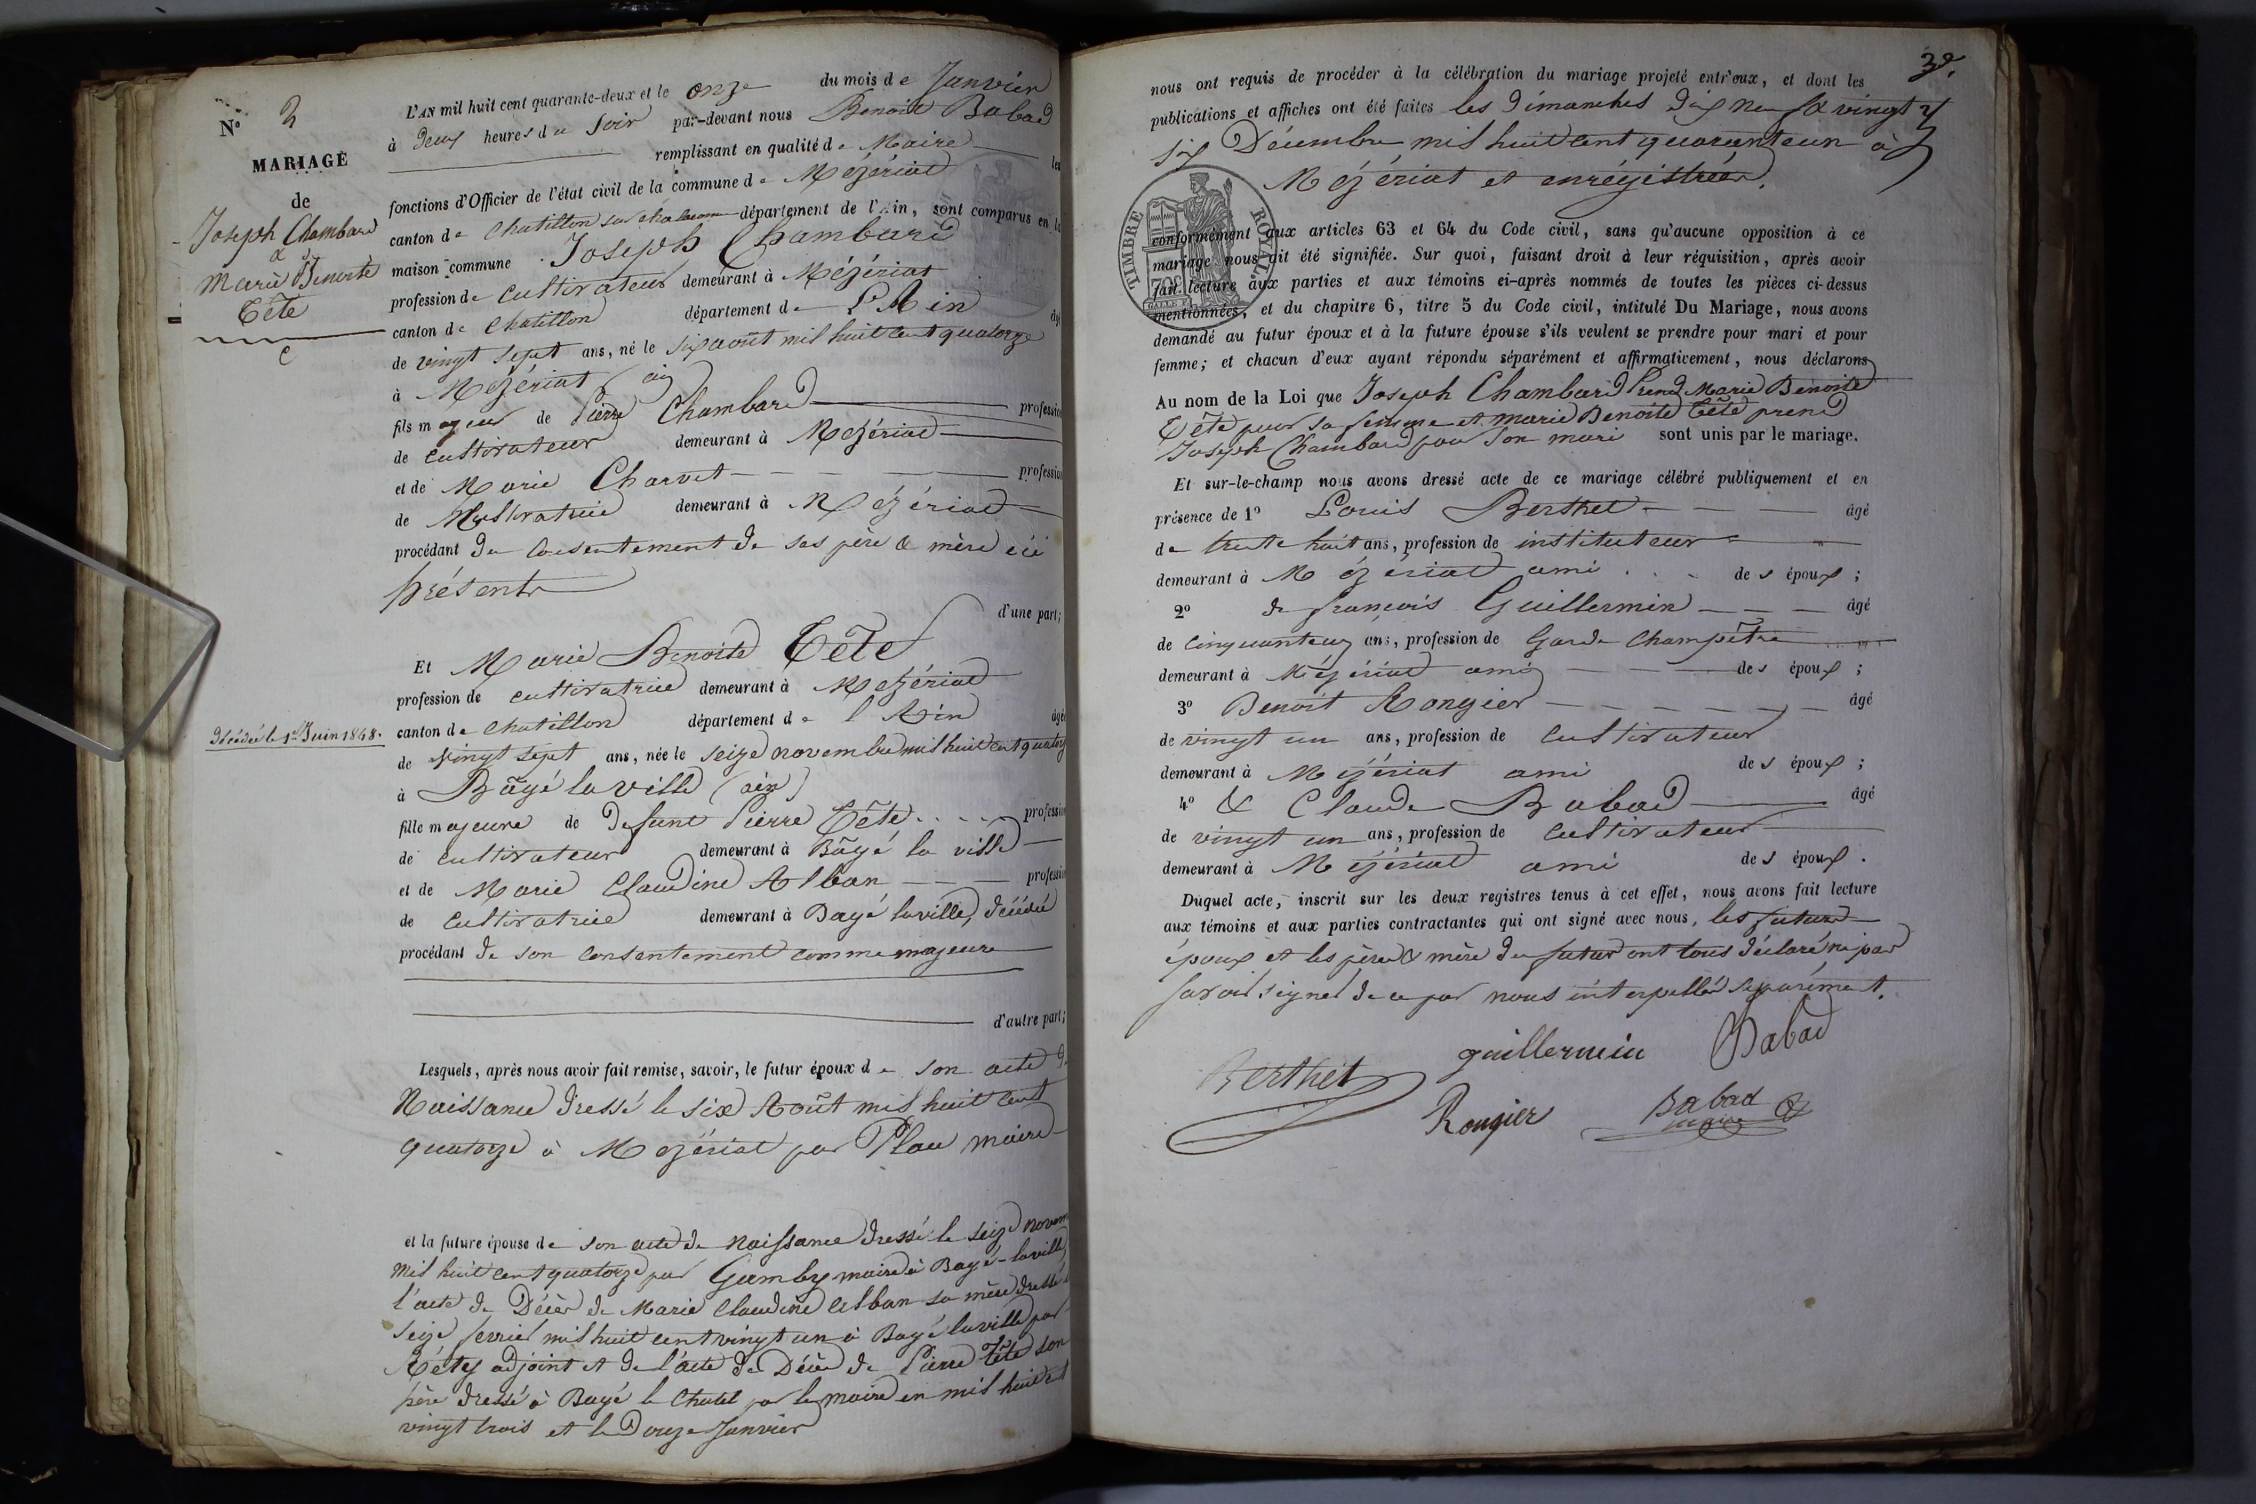 N° 2
MARIAGE
de
Joseph Chambard
&
Marie Benoite
Tête
L'AN mil huit cent quarante-deux et le onze du mois de Janvier
à Deux heures du Soir par-devant nous Benoit Babad
remplissant en qualité de Maire les
fonctions d'Officier de l'état civil de la commune de Mézériat
canton de Chatillon sur chalaronne département de l'Ain, sont comparus en la
maison commune Joseph Chambard
profession de cultivateur demeurant à Mézériat
canton de Chatillon département de L'Ain âgé
de vingt sept ans, né le six août mil huit cent quatorze
à Mézériat (ain)
fils majeur de Pierre Chambard profession
de cultivateur demeurant à Mézériat
et de Marie Charvet profession
de Cultivatrice demeurant à Mézériat
procédant du Consentement de ses père & mère ici
présents
d'une part;
Et Marie Benoite Tête
profession de cultivatrice demeurant à Mézériat
Décédée le 1er Juin 1848.
canton de Chatillon département de l'Ain âgée
de vingt sept ans, née le seize novembre mil huit cent quatorze
à Bâgé la ville (ain)
fille majeure de Defunt Pierre Tête profession
de cultivateur demeurant à Bâgé la ville
et de Marie Claudine Alban profession
de Cultivatrice demeurant à Bagé laville, décédée
procédant de son consentement comme majeure
d'autre part;
Lesquels, après nous avoir fait remise, savoir, le futur époux de son acte de
Naissance dressé le six Août mil huit cent
quatorze à Mézériat par Plau maire
et la future épouse de son acte de naissance dressé le seize novem
mil huit cent quatorze par Gamby maire à Bagé-laville
l'acte de Décès de Marie Claudine Alban sa mère dressé
seize fevrier mil huit cent vingt un à Bagé laville par
adjoint et de l'acte de Décès de Pierre Tête son
père dressé à Bagé le Chatel par le maire en mil huit cent
vingt trois et le Douze Janvier
nous ont requis de procéder à la célébration du mariage projeté entr'eux, et dont les
publications et affiches ont été faites les Dimanches Dix neuf & vingt
six Décembre mil huit cent quarante un à
Mézériat et enrégistrées.
TIMBRE ROYAL.
conformément aux articles 63 et 64 du Code civil, sans qu'aucune opposition à ce
mariage nous ait été signifiée. Sur quoi, faisant droit à leur réquisition, après avoir
fait lecture aux parties et aux témoins ci-après nommés de toutes les pièces ci-dessus
mentionnées, et du chapitre 6, titre 5 du Code civil, intitulé Du Mariage, nous avons
demandé au futur époux et à la future épouse s'ils veulent se prendre pour mari et pour
femme; et chacun d'eux ayant répondu séparément et affirmativement, nous déclarons
Au nom de la Loi que Joseph Chambard Prend Marie Benoite
Tête pour sa femme et Marie Benoite Tête prend
Joseph Chambard pour son mari sont unis par le mariage.
Et sur-le-champ nous avons dressé acte de ce mariage célébré publiquement et en
présence de 1° Louis Berthet âgé
de trente huit ans, profession de instituteur
demeurant à Mézériat ami des époux;
2° de françois Guillermin âgé
de cinquante ans, profession de Garde Champêtre
demeurant à Mézériat ami des époux;
3° Benoit Rongier âgé
de vingt un ans, profession de Cultivateur
demeurant à Mézériat ami des époux;
4° & Claude Babad âgé
de vingt un ans, profession de Cultivateur
demeurant à Mézériat ami des époux.
Duquel acte, inscrit sur les deux registres tenus à cet effet, nous avons fait lecture
aux témoins et aux parties contractantes qui ont signé avec nous, les futurs
époux et les père & mère du futur ont tous déclaré ne pas
savoir signer de ce par nous interpellés séparément.
Berthet guillermin Babad
Rongier Babad
maire